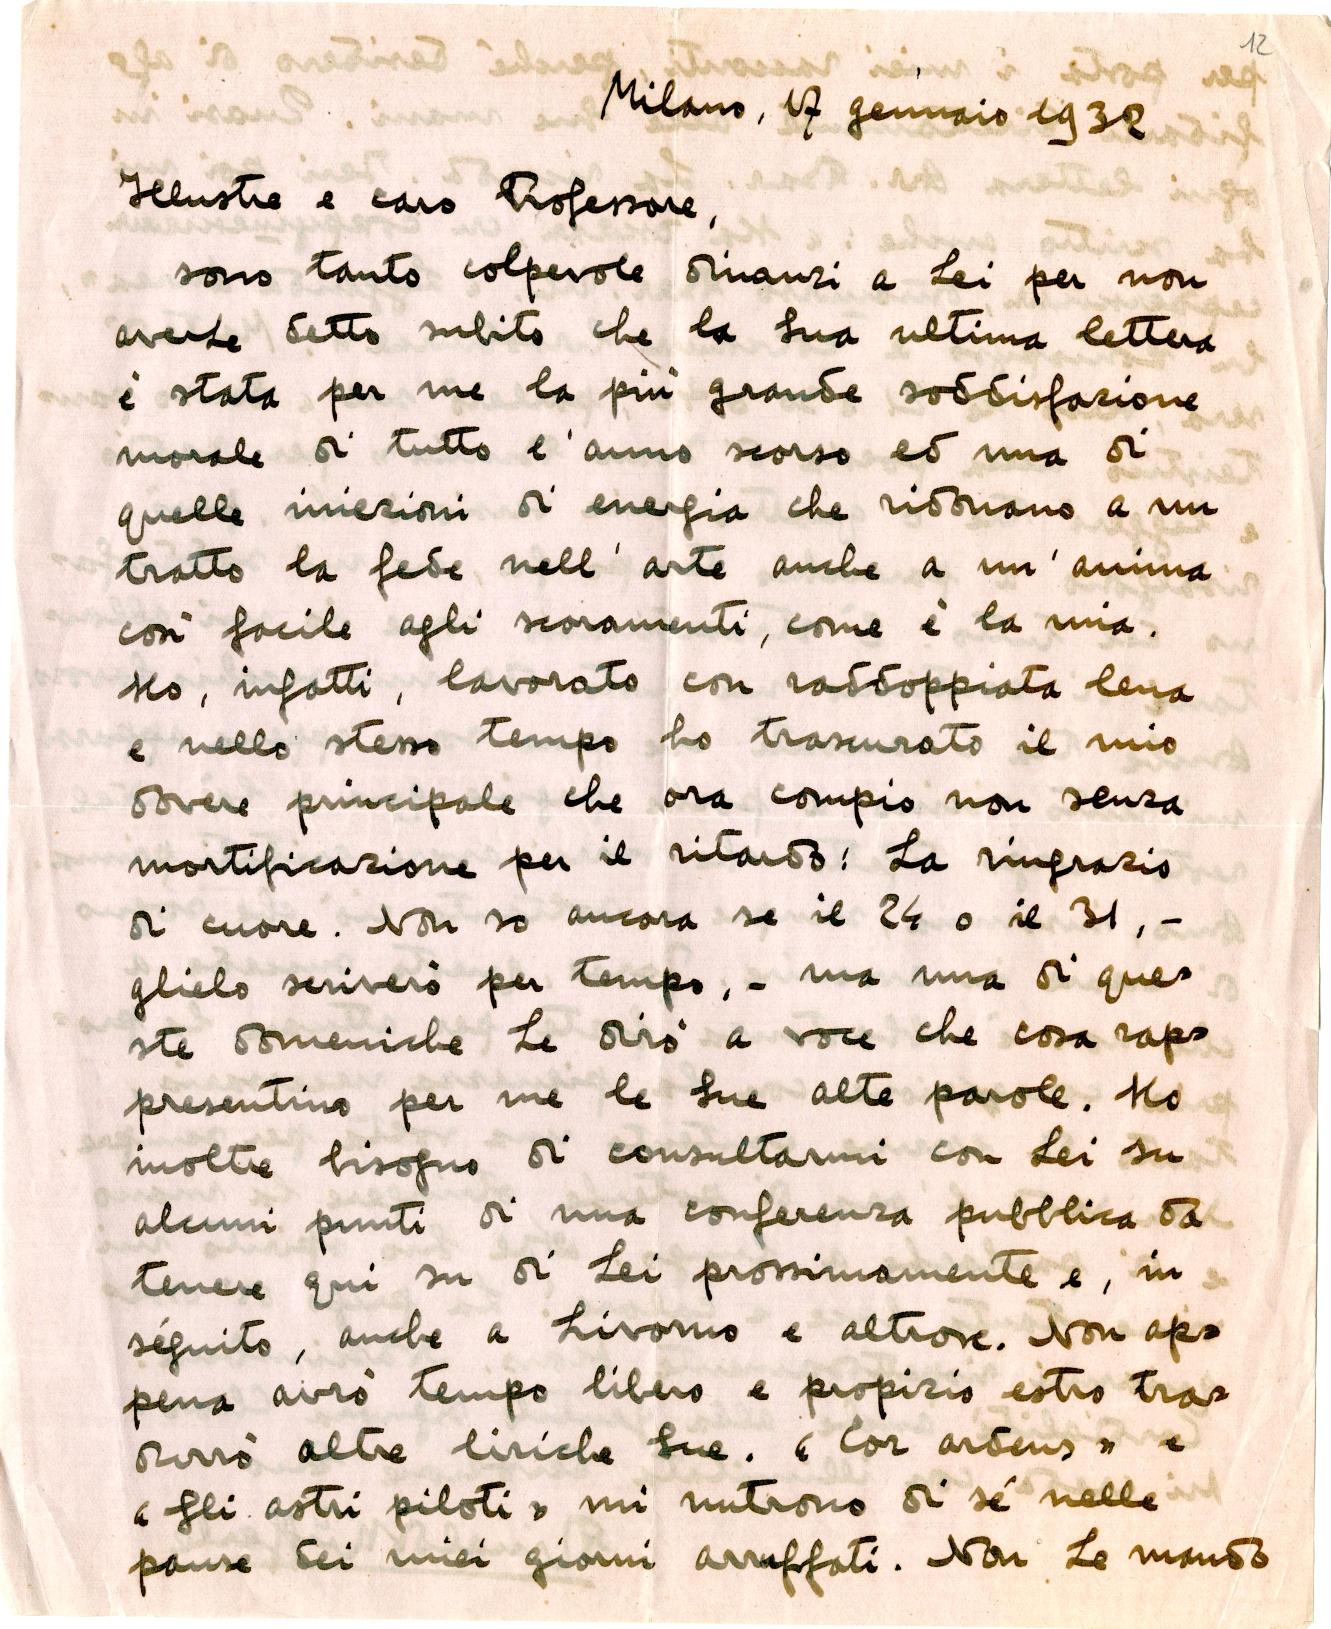 12
Milano, 17 gennaio 1932
Illustre e caro Professore,
sono tanto colpevole dinanzi a Lei per non
averLe detto subito che la Sua ultima lettera
è stata per me la più grande soddisfazione
morale di tutto l'anno scorso ed una di
quelle iniezioni di energia che ridonano a un
tratto la fede nell'arte anche a un'anima
così facile agli scoramenti, come è la mia.
Ho, infatti, lavorato con raddoppiata lena
e nello stesso tempo ho trascurato il mio
dovere principale che ora compio non senza
mortificazione per il ritardo: La ringrazio
di cuore. Non so ancora se il 24 o il 31, -
glielo scriverò per tempo, - ma una di que=
ste domeniche Le dirò a voce che cosa rap=
presentino per me le Sue alte parole. Ho
inoltre bisogno di consultarmi con Lei su
alcuni punti di una conferenza pubblica da
tenere qui su di Lei prossimamente e, in
séguito, anche a Livorno e altrove. Non ap=
pena avrò tempo libero e propizio estro tra=
durrò altre liriche Sue. « Cor ardens » e
« Gli astri piloti » mi nutrono di sé nelle
pause dei miei giorni arruffati. Non Le mando